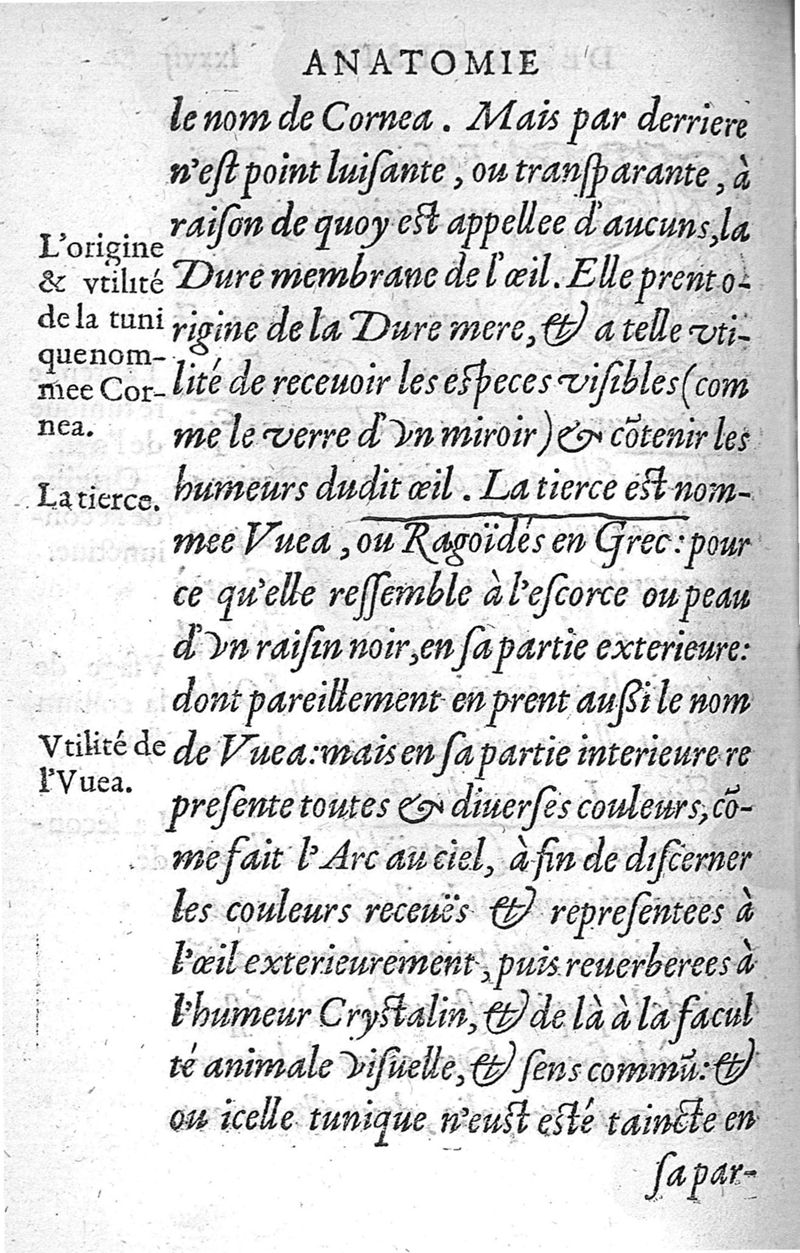 ANATOMIE
le nom de Cornea. Mais par derriere
n'eſt point luiſante, ou tranſparante, à
raiſon de quoy eſt appellee d'aucuns, la
Dure membrane de l'œil. Elle prent o-
rigine de la Dure mere, & a telle vti-
lité de receuoir les eſpeces viſibles (com
me le verre d'vn miroir) & cōtenir les
humeurs dudit œil. La tierce eſt nom-
mee Vuea, ou Ragoïdés en Grec: pour
ce qu'elle reſſemble à l'eſcorce ou peau
d'vn raiſin noir, en ſa partie exterieure:
dont pareillement en prent auſſi le nom
de Vuea: mais en ſa partie interieure re
preſente toutes & diuerſes couleurs, cō-
me fait l'Arc au ciel, à fin de diſcerner
les couleurs receuës & repreſentees à
l'œil exterieurement, puis reuerberees à
l'humeur Cryſtalin, & de là à la facul
té animale viſuelle, & ſens commū: &
ou icelle tunique n'euſt eſté taincte en
ſa par-
L'origine
& vtilité
de la tuni
que nom-
mee Cor-
nea.
La tierce.
Vtilité de
l'Vuea.